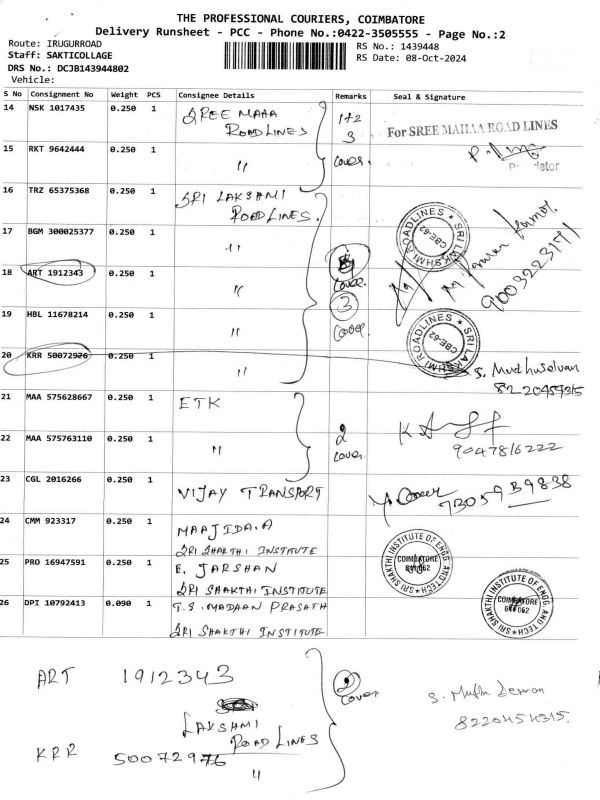 THE PROFESSIONAL COURIERS, COIMBATORE
Delivery Runsheet - PCC - Phone No.:0422-3505555 - Page No.:2
Route: IRUGURROAD
Staff: SAKTICOLLAGE
DRS No.: DCJB143944802
Vehicle:
RS No.: 1439448
RS Date: 08-Oct-2024
S No Consignment No Weight PCS Consignee Details Remarks Seal & Signature
14 NSK 1017435 0.250 1 SREE MAHA ROAD LINES 1+2 3 cover.
For SREE MAHAA ROAD LINES
15 RKT 9642444 0.250 1 "
16 TRZ 65375368 0.250 1 SRI LAKSHMI ROAD LINES.
17 BGM 300025377 0.250 1 "
SRI LAKSHMI ROADLINES CBE-62
9003223171
18 ART 1912343 0.250 1 " cover.
19 HBL 11678214 0.250 1 " 3 cover.
SRI LAKSHMI ROADLINES CBE-62
20 KRR 50072976 0.250 1 "
S. Muthuselvan
8220454315
21 MAA 575628667 0.250 1 ETK
22 MAA 575763110 0.250 1 " 2 cover.
9047816222
23 CGL 2016266 0.250 1 VIJAY TRANSPORT
24 CMM 923317 0.250 1 MAAJIDA.A
SRI SHAKTHI INSTITUTE
25 PRO 16947591 0.250 1 E. JARSHAN
SRI SHAKTHI INSTITUTE
SRI SHAKTHI INSTITUTE OF ENGG. AND TECH COIMBATORE 641 062
26 DPI 10792413 0.090 1 T.S. MADAAN PRASATH
SRI SHAKTHI INSTITUTE
SRI SHAKTHI INSTITUTE OF ENGG. AND TECH COIMBATORE 641 062
ART 1912343
2 cover
LAKSHMI
ROAD LINES
8220454315.
KRR 50072976
"